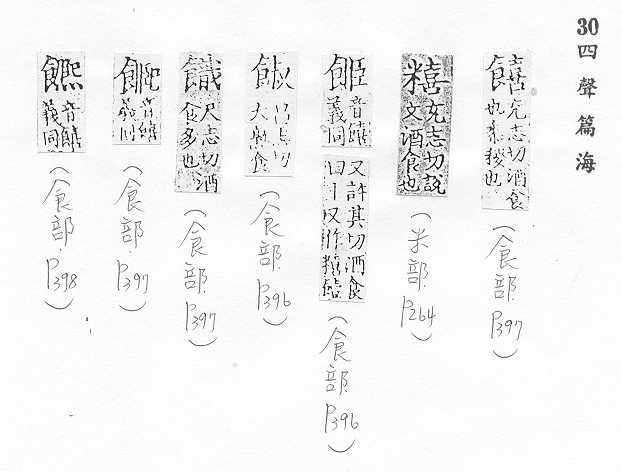 30 四聲篇海
饎 充志切酒食
也黍稷也
(食部 P397)
糦 充志切說
文酒食也
(米部 P264)
音饎
義同
又許其切酒食
又作糦饎
(食部 P396)
大熟食
(食部 P396)
尺志切酒
食多也
(食部 P397)
音饎
義同
(食部 P397)
音饎
義同
(食部 P398)